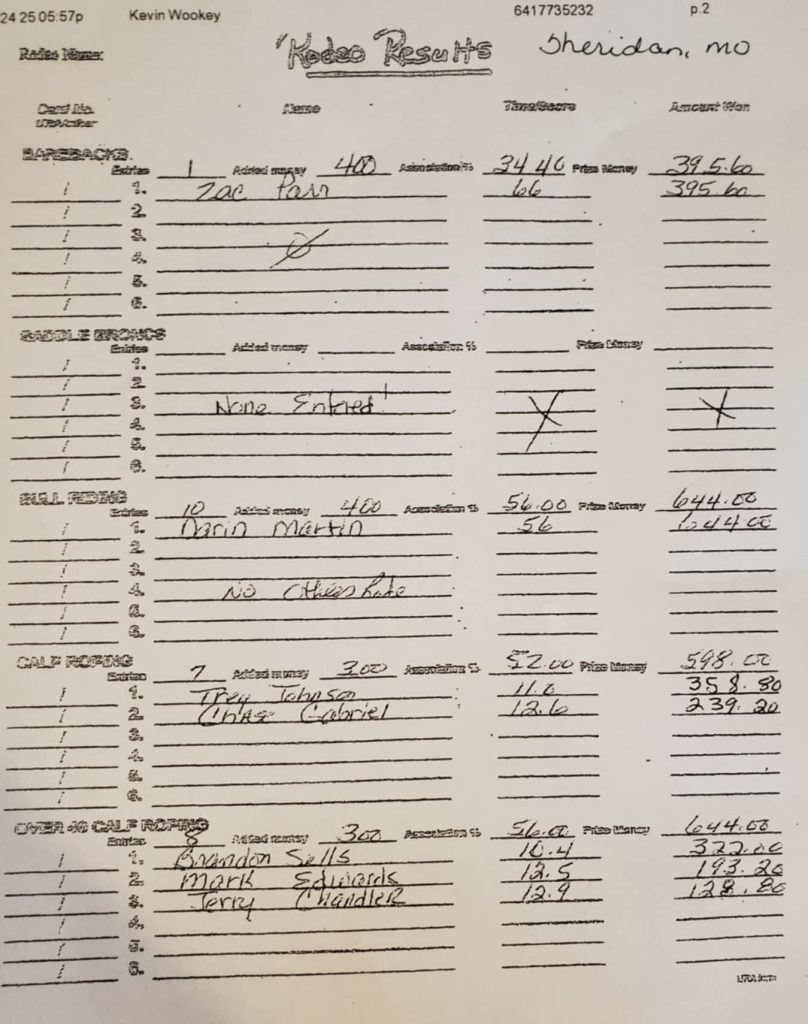 24 25 05:57p Kevin Wookey 6417735232 p.2
Rodeo Name: Rodeo Results Sheridan, MO
Card No. Name Time/Score Amount Won
BAREBACKS
Entries 1 Added money 400 Association % 34.40 Prize Money 395.60
/ 1. Zac Parr 66 395.60
/ 2.
/ 3.
/ 4. Ø
/ 5.
/ 6.
SADDLE BRONCS
Entries Added money Association % Prize Money
/ 1.
/ 2.
/ 3. None Entered! X X
/ 4.
/ 5.
/ 6.
BULL RIDING
Entries 10 Added money 400 Association % 56.00 Prize Money 644.00
/ 1. Darin Martin 56 644.00
/ 2.
/ 3.
/ 4. No Others Rode
/ 5.
/ 6.
CALF ROPING
Entries 7 Added money 300 Association % 52.00 Prize Money 598.00
/ 1. Trey Johnson 11.0 358.80
/ 2. Chase Gabriel 12.6 239.20
/ 3.
/ 4.
/ 5.
/ 6.
OVER 40 CALF ROPING
Entries 8 Added money 300 Association % 56.00 Prize Money 644.00
/ 1. Brandon Sells 10.4 322.00
/ 2. Mark Edwards 12.5 193.20
/ 3. Jerry Chandler 12.9 128.80
/ 4.
/ 5.
/ 6.